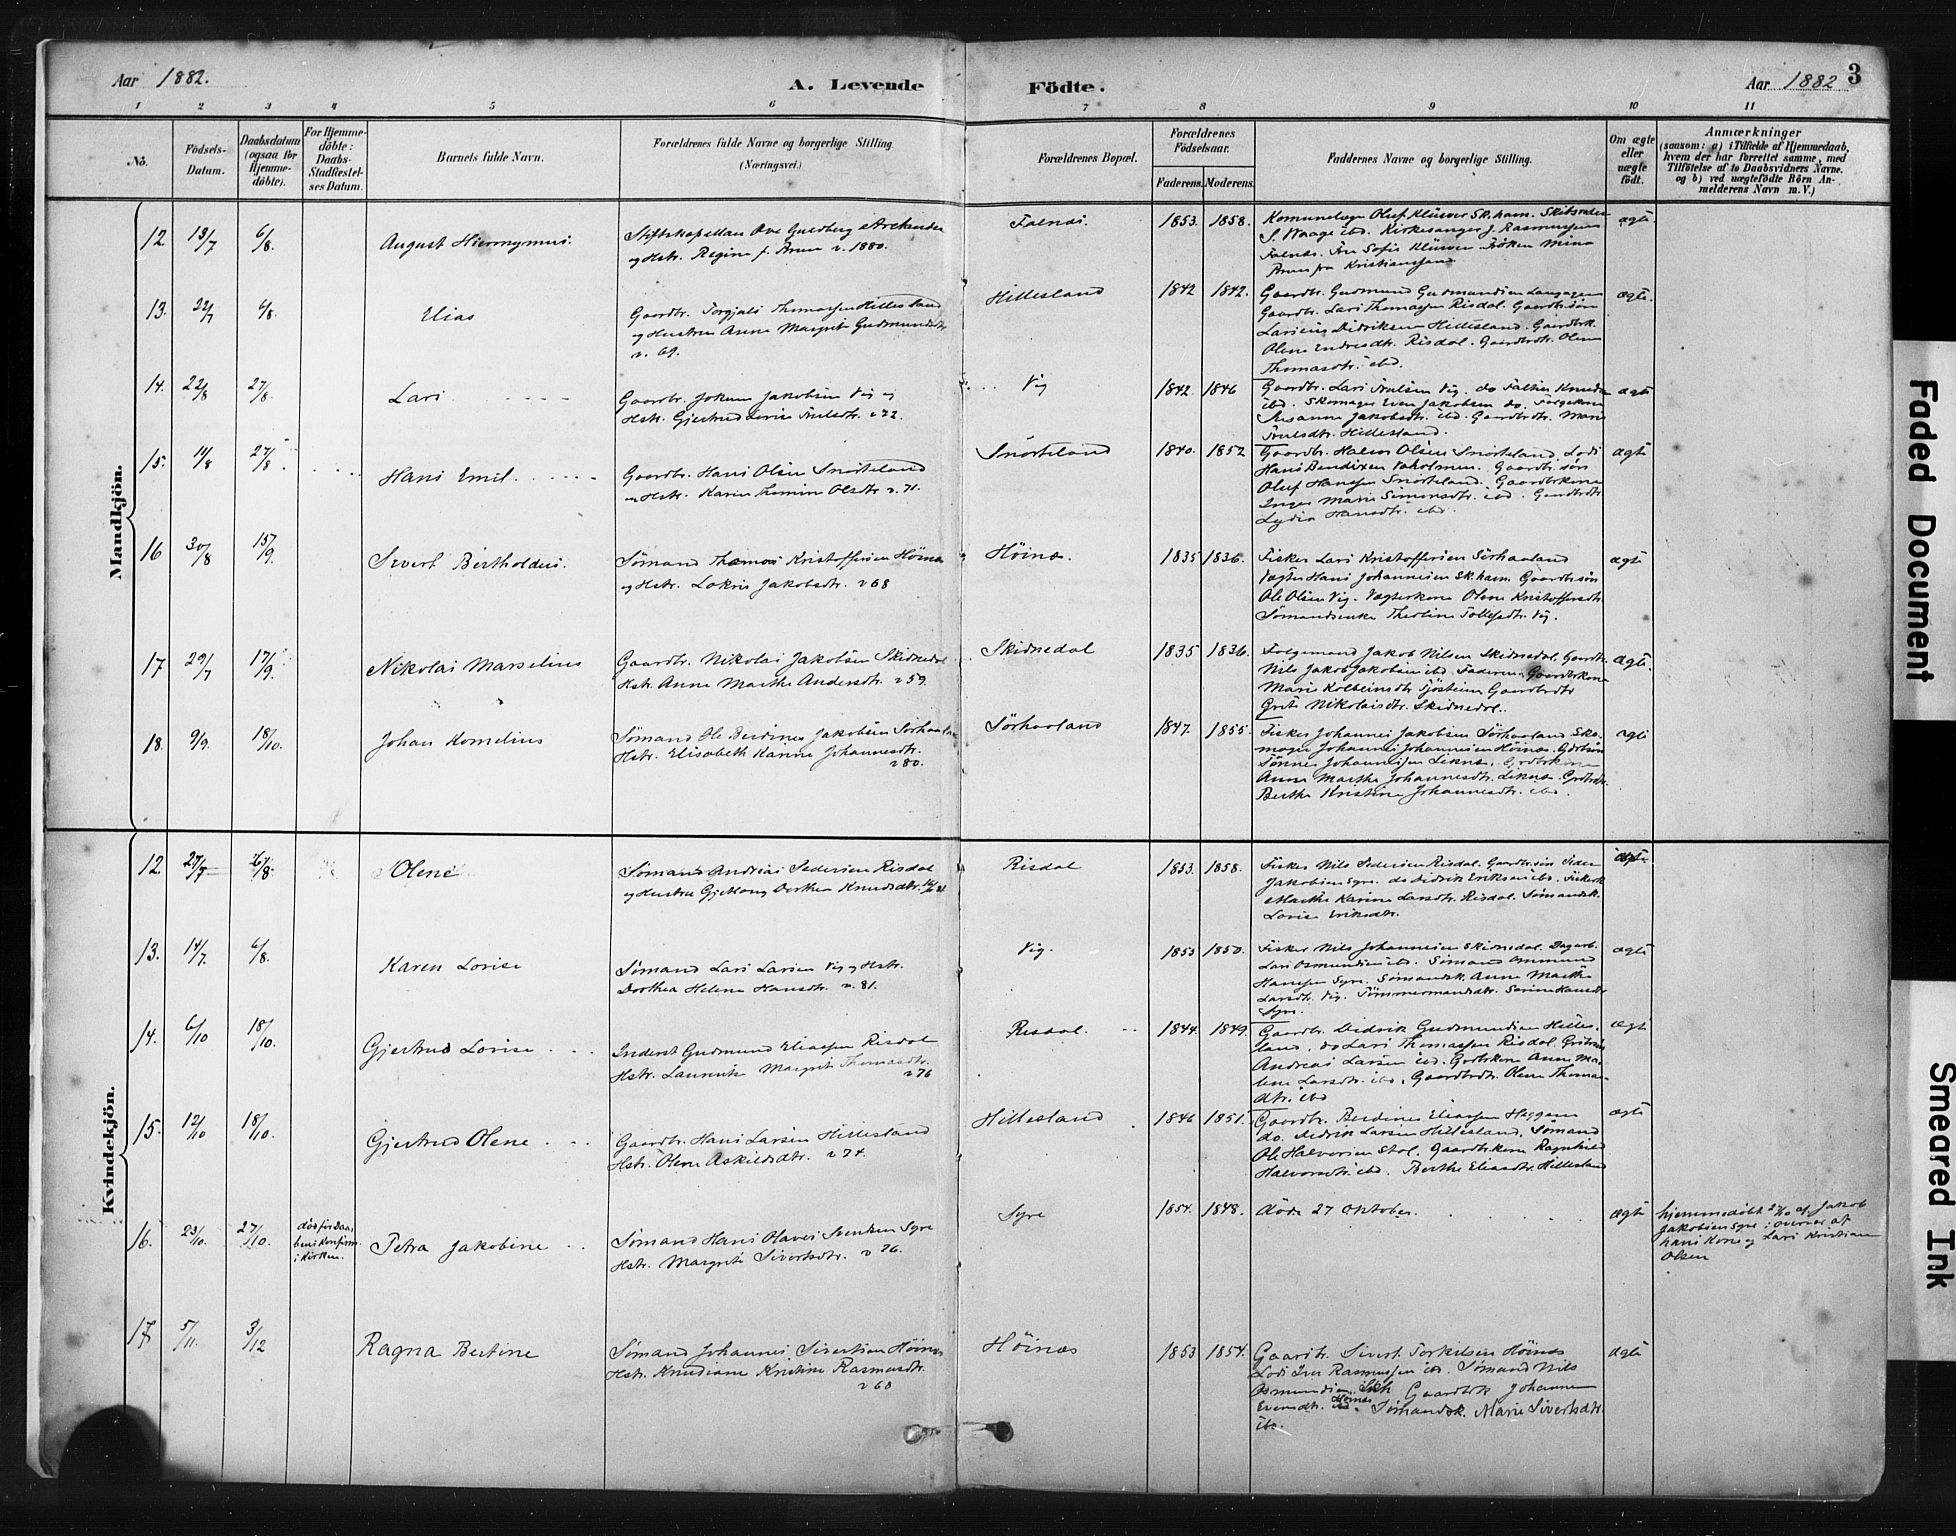 Aar 1882. A. Levende Födte. Aar 1882 3
1 2 3 4 5 6 7 8 9 10 11
No.
Födsels-
Datum.
Daabsdatum
(ogsaa for
Hjemme-
döbte).
For Hjemme-
döbte:
Daabs-
Stadfæstel-
ses Datum.
Barnets fulde Navn.
Forældrenes fulde Navne og borgerlige Stilling.
(Næringsvei.)
Forældrenes Bopæl.
Forældrenes
Födselsaar.
Faderens. Moderens.
Faddernes Navne og borgerlige Stilling.
Om ægte
eller
uægte
födt.
Anmærkninger
(saasom: a) i Tilfælde af Hjemmedaab,
hvem der har forrettet samme, med
Tilföielse af to Daabsvidners Navne.
og b) ved uægtefödte Börn An-
melderens Navn m. V.)
Mandkjön.
12 13/7 6/8. August Hieronymus.
og Hstr. Regine f. v. 1880.
Falnæs. 1853. 1858. ægte
13. 22/7 6/8. Elias
Gaardbr. Torgjals Thomassen Hillesland
og Hustru Anne Margrete Gudmundsdtr
v. 69.
Hillesland 1842 1842.
Gaardbr. Gudmund Gudmundsen
Gaardbr. Lars Thomassen Risdal. Gaardbrsön
Didriksen Hillesland. Gaardbrk.
Olene Endresdtr. Risdal. Gaardbrdtr. Olene
Thomasdtr. ibd.
ægte.
14. 22/8 27/8. Lars
Gaardbr. Jokum Jakobsen Vig og
Hstr. Gjertrud v 72.
Vig 1842. 1846
Gaardbr. Lars Vig. do
ibd. Skomager Even Jakobsen do.
Susanne Jakobsdtr. ibd. Gaardbrdtr. Marie
Hillesland.
ægte
15. 14/8 27/8. Hans Emil.
Gaardbr. Hans Olsen Snørteland
og Hstr. Karen Olsdtr v. 71.
Snørteland 1840. 1852
Gaardbr. Halvor Olsen Snørteland. Lods
Hans Bendixen Vaholmen. Gaardbr.sön
Oluf Hansen Snørteland. Gaardbrkone
Inger Marie Simonsdtr. ibd. Gaardbrdtr
Lydia Hansdtr. ibd.
ægte
16 30/8 15/9. Sivert Bertholdus.
Sømand Thomas Kristoffersen Høinæs
og Hstr. Jakobsdtr. v 68
Høinæs. 1835 1836.
Fisker Lars Kristoffersen Sørhaaland
Vægter Hans Johannesen Sk.havn. Gaardbr.sön
Ole Olsen Vig. Vægterkone Olene Kristoffersdtr.
Sømandsenke Tollefsdtr. Vig.
ægte
17. 29/7 17/9. Nikolai Marselius
Gaardbr. Nikolai Jakobsen Skidnedal
Hstr. Anne Marthe Andersdtr. v 59.
Skidnedal 1835 1836.
Folgemand Jakob Nilsen Skidnedal, Gaardbr.
Nils Jakob Jakobsen ibd. Faderen. Gaardbrkone
Marie Kolbeinsdtr Tjøstem Gaardbrdtr
Grete Nikolaisdtr. Skidnedal.
ægte.
18. 9/9. 18/10. Johan Kornelius
Sømand Ole Berdines Jakobsen Sørhaaland
Hstr. Elisabeth Karine Johannesdtr.
v 80.
Sørhaaland 1847. 1855.
Fisker Johannes Jakobsen Sørhaaland Sko-
mager Johannes Johannesen Høinæs. Gdbrsön
Tønnes Johannesen Liknæs. Grdbrkone
Anne Marthe Johannesdtr. Liknæs. Grdbrdtr
Berthe Kristine Johannesdtr. ibd.
ægte
Kvindekjön.
12. 27/7 6/8. Olene
Sømand Andreas Pedersen Risdal
og Hustru Dorthea Knudsdtr.
Risdal 1853. 1858.
Fisker Nils Pedersen Risdal. Gaardbr.sön Peder
Jakobsen Syre. do Didrik Eriksen ibd. Fiskerk
Marthe Karine Larsdtr. Risdal. Sømandsk.
Lovise Eriksdtr.
ægte
13. 14/7. 6/8. Karen Lovise
Sømand Lars Larsen Vig og Hstr.
Dorthea Helene Hansdtr. v. 81.
Vig. 1853 1850.
Fisker Nils Johannesen Skidnedal. Dagarb.
Lars Osmundsen ibd. Sømand Ommund
Hansen Syre. Sømandsk. Anne Marthe
Larsdtr. Vig. Tømmermandsdtr. Sarine Hansdtr
Syre.
ægte
14. 6/10 18/10. Gjertrud Lovise
Inderst Gudmund Eliassen Risdal
Hstr. Laurentze Margrete Thomasdtr.
v 76
Risdal. 1844. 1849.
Gaardbr. Didrik Gudmundsen Hilles-
land. do Lars Thomassen Risdal. Grdbrsön
Andreas Larsen ibd. Grdbrkone Anne Ma-
lene Larsdtr. ibd. Gaardbrdtr. Olene Thomas-
dtr. ibd
ægte
15. 12/10 18/10. Gjertrud Olene
Gaardbr. Hans Larsen Hillesland
Hstr. Olene Askildsdtr. v 74.
Hillesland 1846 1851.
Gaardbr. Berdines Eliassen
do. Didrik Larsen Hillesland. Sømand
Ole Halvorsen Stol. Gaardbrkone Ragnhild
Halvorsdtr. ibd. Berthe Eliasdtr. Hillesland
ægte
16. 23/10. 27/10. død før Daa-
bens Konfirm.
i Kirken. Petra Jakobine
Sømand Hans Svendsen Syre
Hstr. Margrete Sivertsdtr. v 76.
Syre 1854. 1848. døde 27 Oktober. ægte
hjemmedøbt af Jakob
Jakobsen Syre; overvær af
Hans Korne og Lars Kristian
Olsen
17. 5/11. 3/12 Ragna Bertine
Sømand Johannes Sivertsen Høinæs
Hstr. Knudiane Kristine Rasmusdtr.
v 68
Høinæs 1853 1854.
Gaardbr. Sivert Torkelsen Høinæs
Lods Iver Rasmussen ibd. Sømand Nils
Osmundsen Skh Gaardbrk Johanne
Evensdtr. Høinæs. Sømandsk. Marie Sivertsdtr.
ibd.
ægte
Faded Document
Smeared Ink